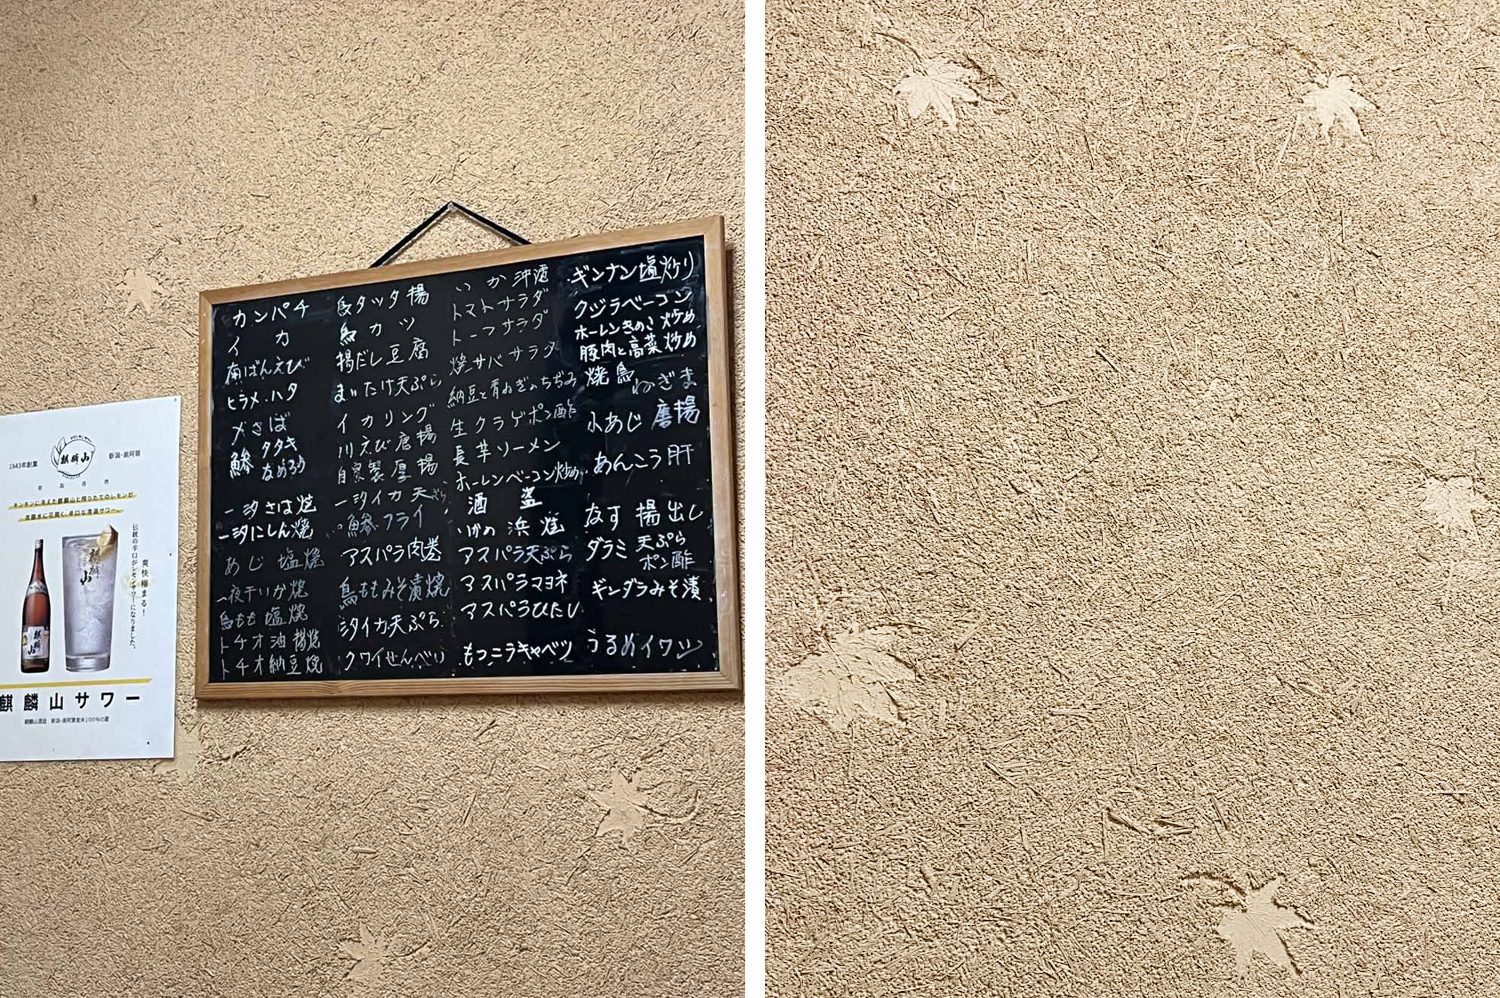 カンパチ
イカ
南ばんえび
ヒラメ.ハタ
〆さば
鰺 タタキ
なめろう
一汐さば焼
一汐にしん焼
あじ 塩焼
一夜干いか焼
鳥もも塩焼
トチオ油揚焼
トチオ納豆焼
鳥タツタ揚
鳥カツ
揚だし豆腐
まいたけ天ぷら
イカリング
川えび唐揚
自家製厚揚
一汐イカ天ぷら
鰺フライ
アスパラ肉巻
鳥ももみそ漬焼
クワイせんべい
いか沖漬
トマトサラダ
トーフサラダ
焼サバサラダ
納豆と青ねぎのちぢみ
生クラゲポン酢
長芋ソーメン
ホーレンベーコン炒め
酒盗
浜焼
アスパラ天ぷら
アスパラマヨネ
アスパラひたし
もつニラキャベツ
ギンナン塩炒り
クジラベーコン
ホーレンきのこ炒め
豚肉と高菜炒め
焼鳥 ねぎま
小あじ唐揚
あんこう肝
なす揚出し
ダラミ 天ぷら
ポン酢
ギンダラみそ漬
うるめイワシ
1843年創業
麒麟山
新潟・奥阿賀
キンキンに冷えた麒麟山と搾りたてのレモンが
爽快極まる！
伝統の辛口がレモンサワーになりました。
麒麟山
麒麟山
麒麟山サワー
麒麟山酒造 新潟・奥阿賀産米100%の蔵